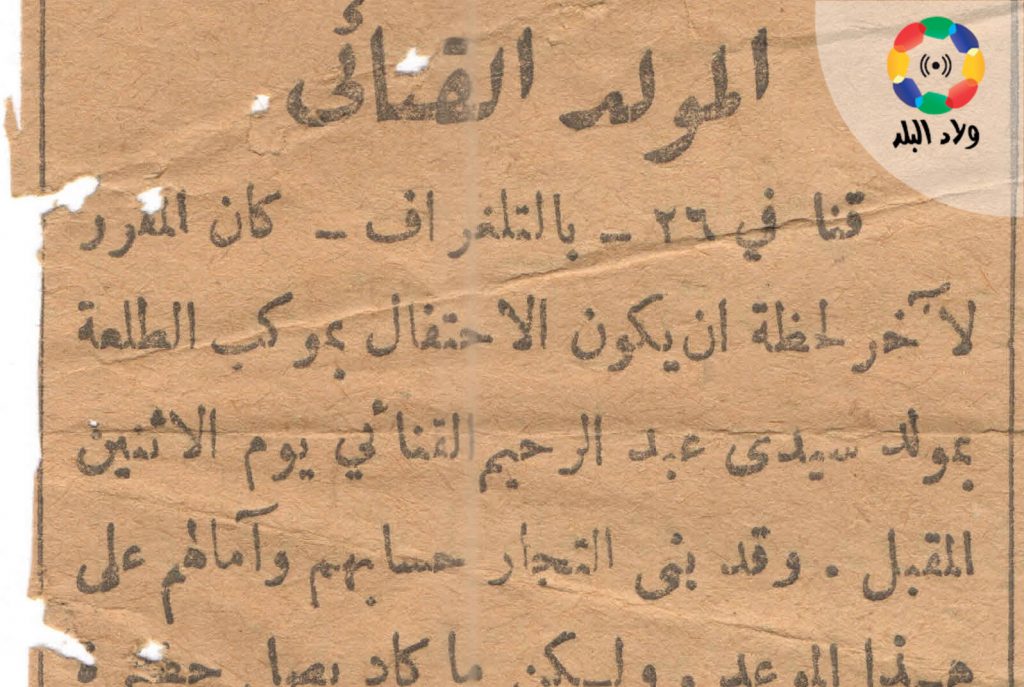 المولد القنائى
ولاد البلد
قنا في ٢٦ ـ بالتلغراف ـ كان المقرر
لآخر لحظة ان يكون الاحتفال بموكب الطلعة
بمولد سيدى عبد الرحيم القنائي يوم الاثنين
المقبل . وقد بنى التجار حسابهم وآمالهم على
هذا الموعد . ولكن ما كاد يصل حضرة